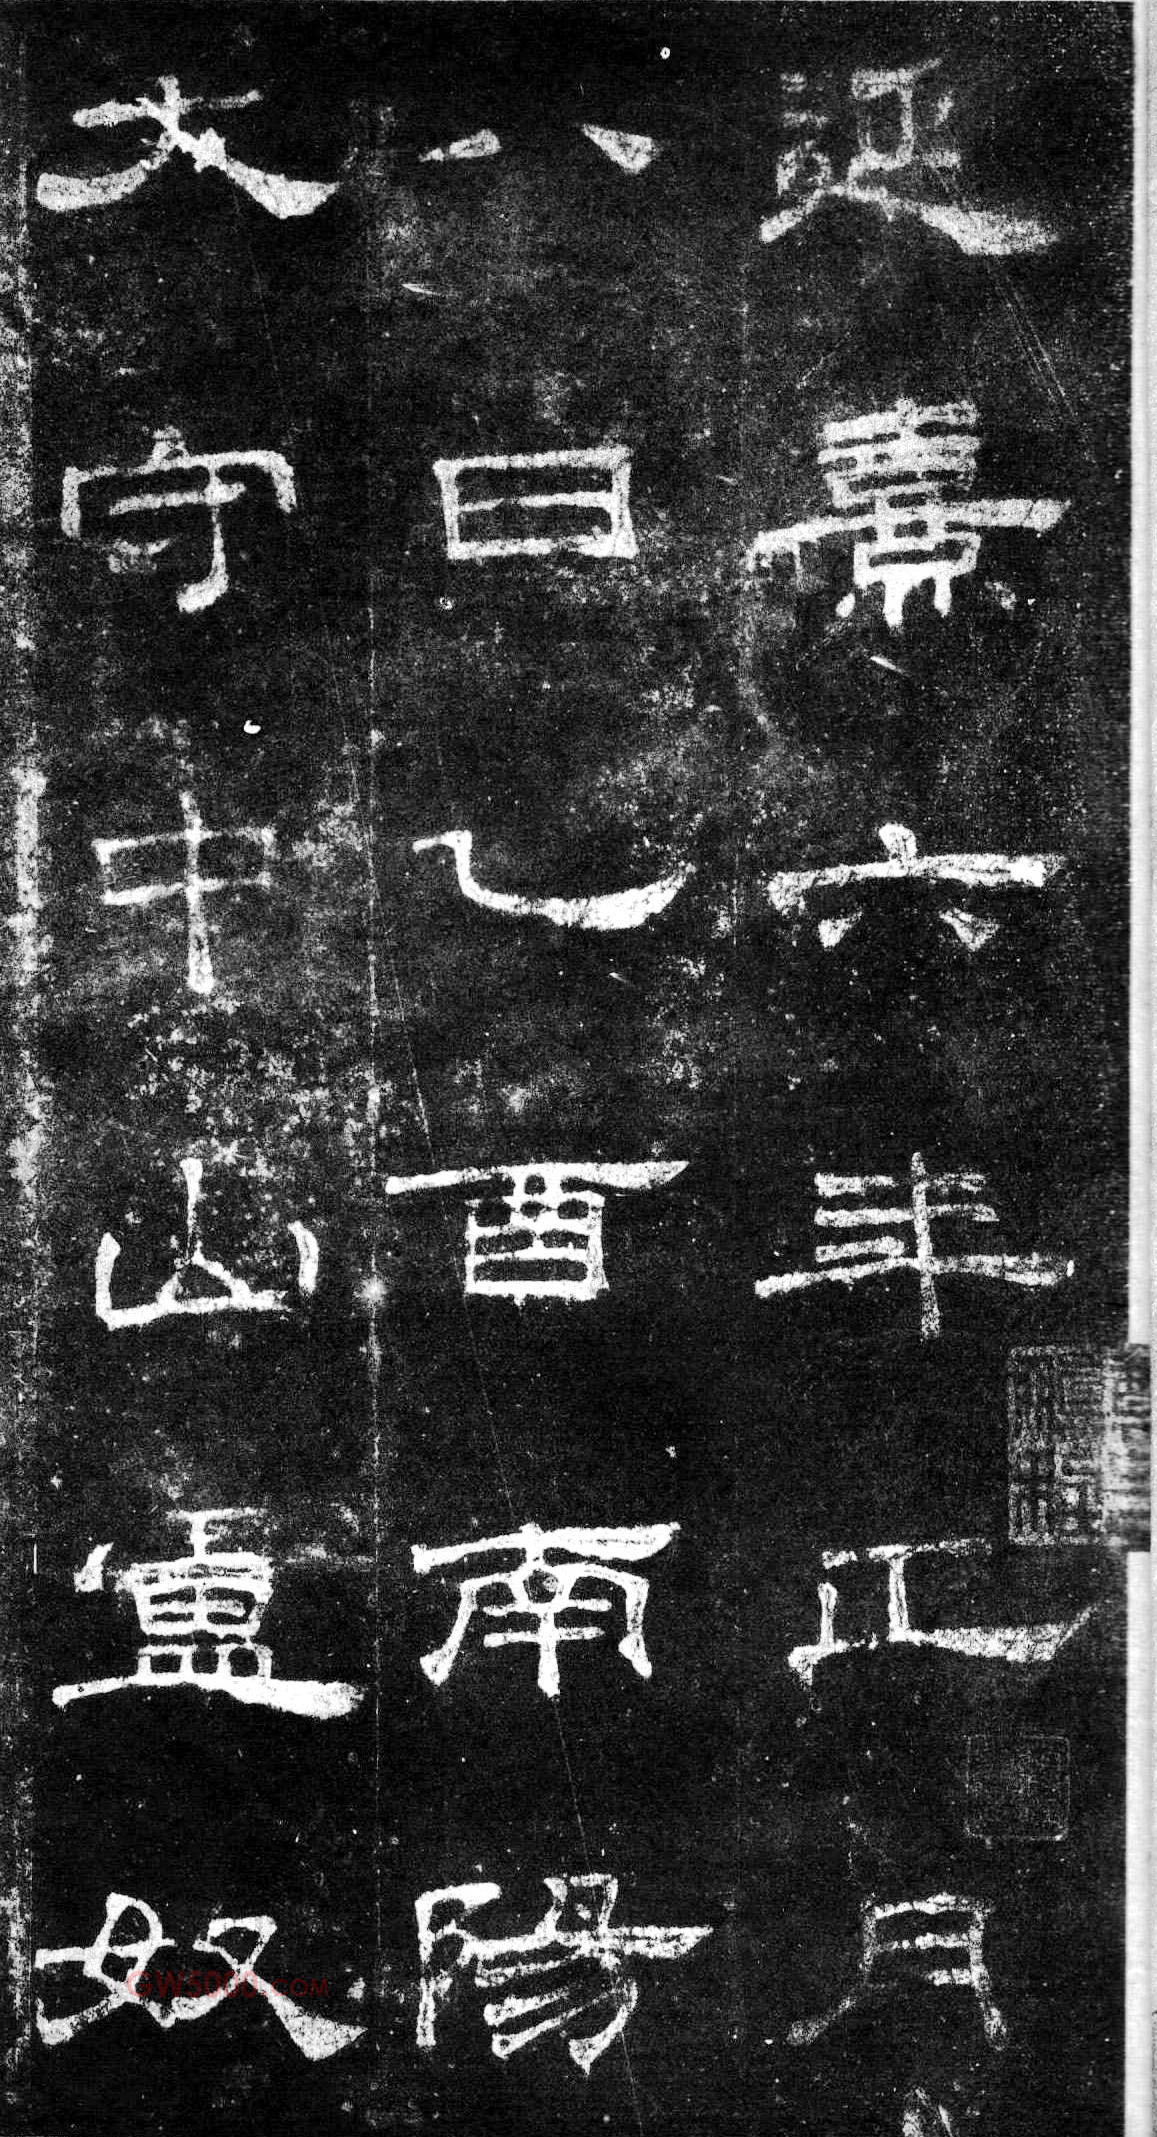 延熹六年正月
八日乙酉南陽
大守中山盧奴
GW5000.COM